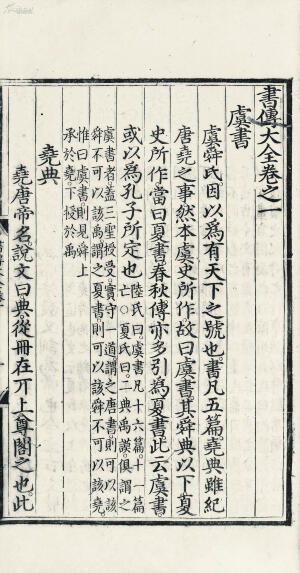 書傳大全卷之一
虞書
虞舜氏因以為有天下之號也書凡五篇堯典雖紀
唐堯之事然本虞史所作故曰虞書其舜典以下夏
史所作當曰夏書春秋傳亦多引為夏書此云虞書
或以為孔子所定也陸氏曰虞書凡十六篇十一篇
亡○夏氏曰二典禹謨俱謂之
虞書者蓋三聖授受實守一道謂之唐書則可以該
舜不可以該禹謂之夏書則可以該舜不可以該堯
惟曰虞書則見舜上
承於堯下授於禹
堯典
堯唐帝名說文曰典從冊在丌上尊閣之也此